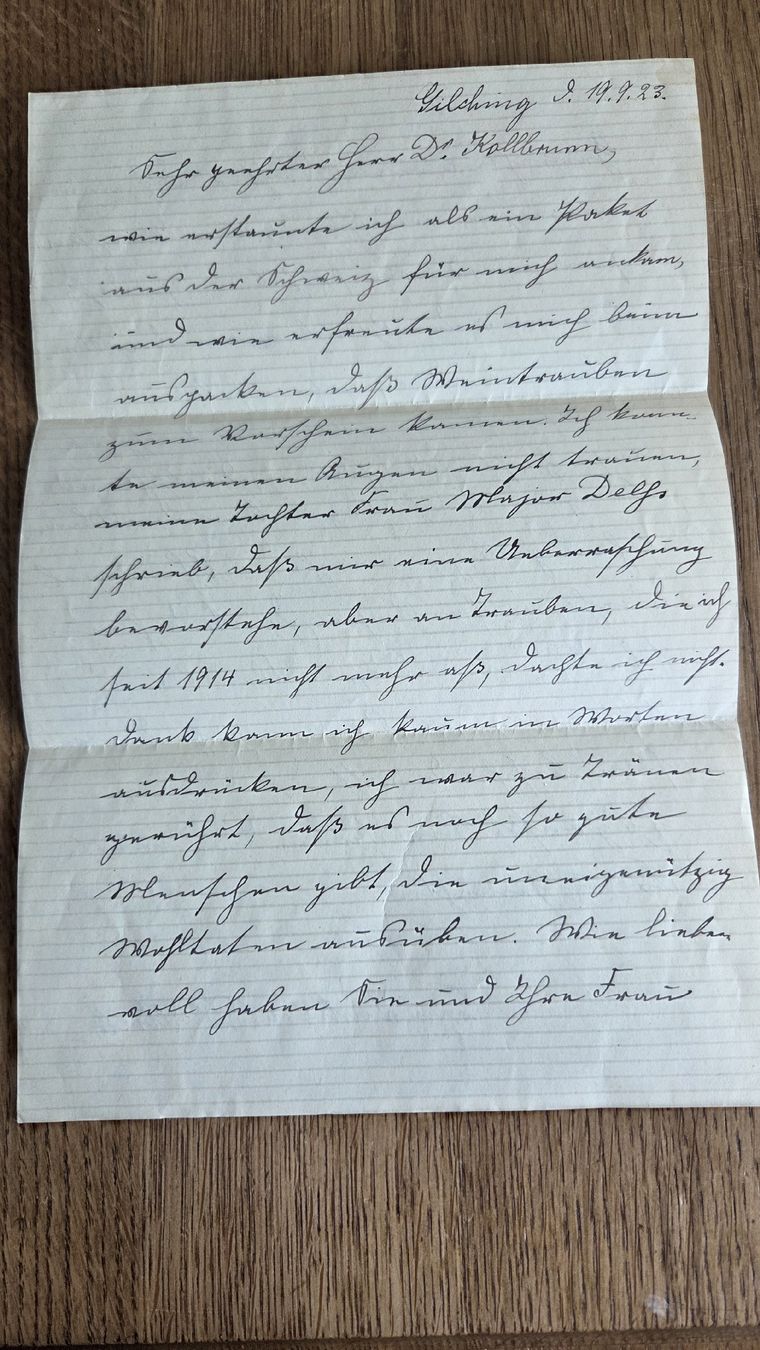 Gilching d. 19.9.23.
Sehr geehrter Herr Dr. Kollbrunn,
wie erstaunte ich als ein Paket
aus der Schweiz für mich ankam,
und wie erfreute es mich beim
auspacken, daß Weintrauben
zum Vorschein kamen. Ich konn-
te meinen Augen nicht trauen,
meine Tochter Frau Major Delhs
schrieb, daß mir eine Ueberraschung
bevorstehe, aber an Trauben, die ich
seit 1914 nicht mehr aß, dachte ich nicht.
Dank kann ich kaum in Worten
ausdrücken, ich war zu Tränen
gerührt, daß es noch so gute
Menschen gibt, die uneigennützig
Wohltaten ausüben. Wie liebe-
voll haben Sie und Ihre Frau